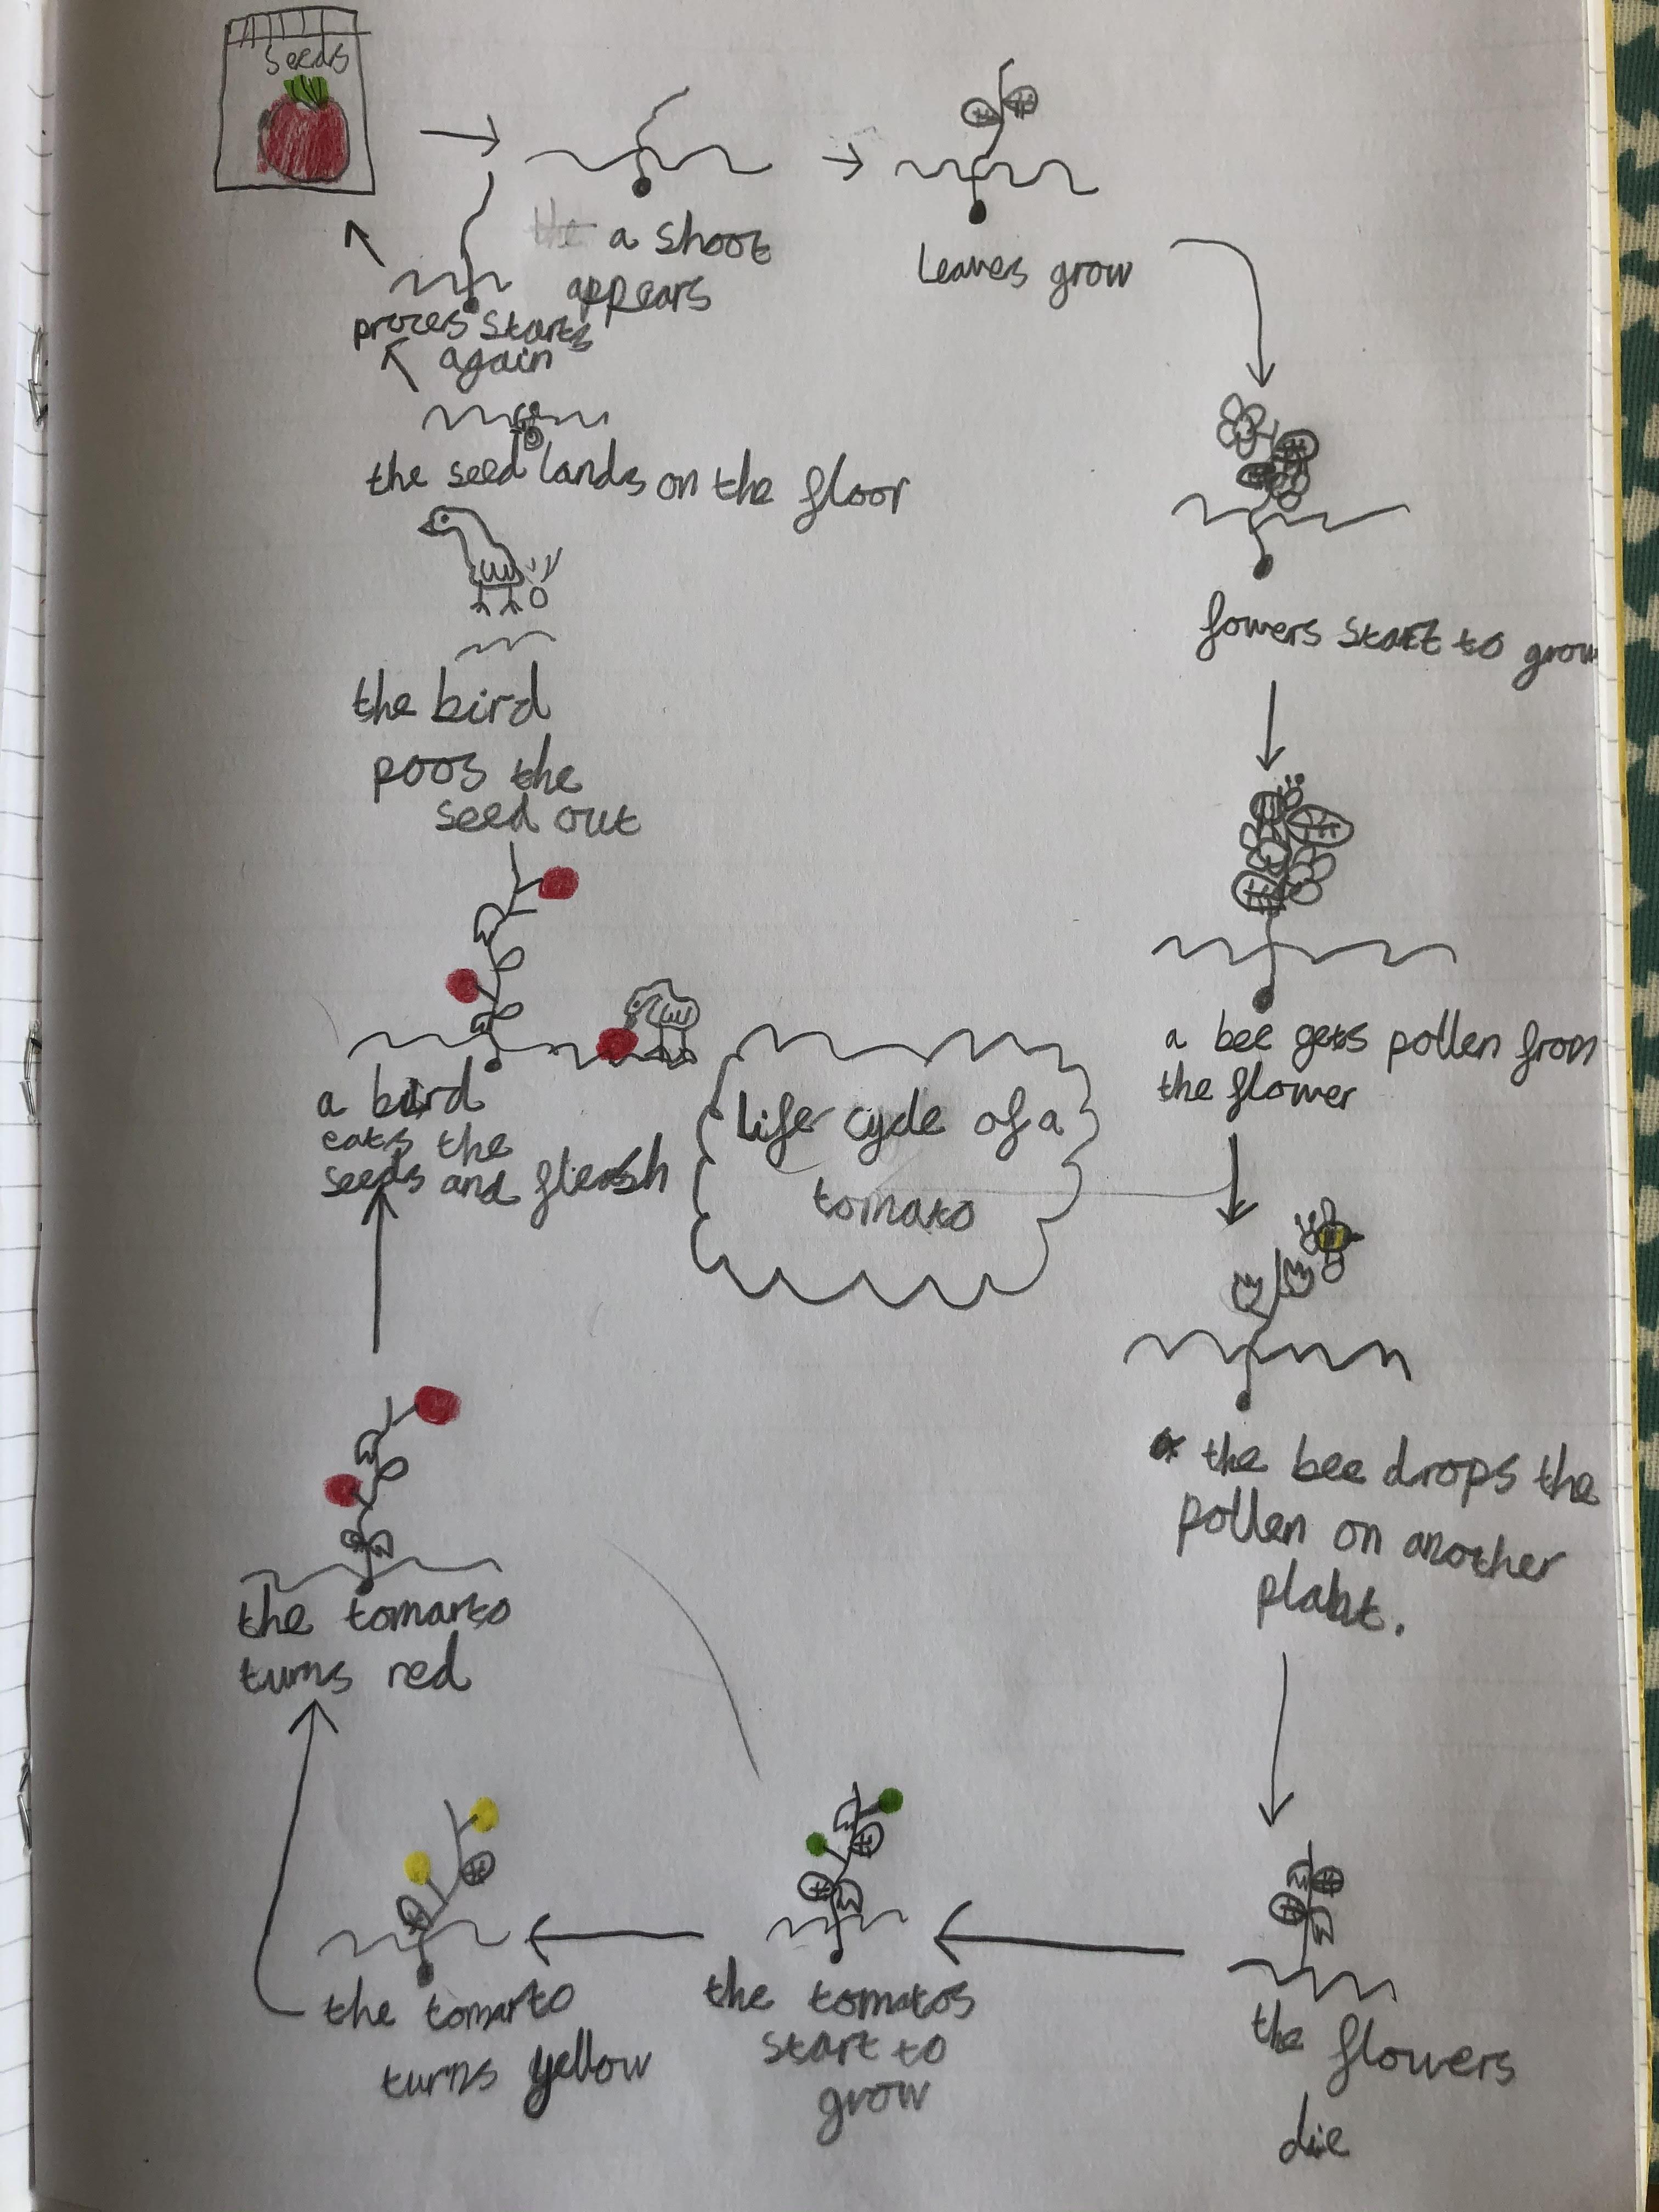 Seeds
a shoot
appears
Leaves grow
fowers start to grow
a bee gets pollen from
the flower
the bee drops the
pollen on another
plant.
the flowers
die
the tomatos
start to
grow
the tomarto
turns yellow
the tomarto
turns red
a bird
eats the
seeds and fleash
the bird
poos the
seed out
the seed lands on the floor
proces starts
again
life cycle of a
tomato